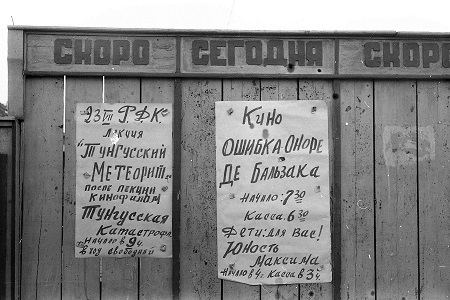 СКОРО СЕГОДНЯ СКОРО
23 VII РДК
ЛЕКЦИЯ
"ТУНГУССКИЙ
МЕТЕОРИТ"
ПОСЛЕ ЛЕКЦИИ
КИНОФИЛЬМ
ТУНГУССКАЯ
КАТАСТРОФА
НАЧАЛО В 9 ч.
ВХОД СВОБОДНЫЙ
КИНО
ОШИБКА ОНОРЕ
ДЕ БАЛЬЗАКА
НАЧАЛО: 7 30
КАССА: 6 30
ДЕТИ: ДЛЯ ВАС!
ЮНОСТЬ
МАКСИМА
НАЧАЛО В 4 ч. КАССА В 3 ч.